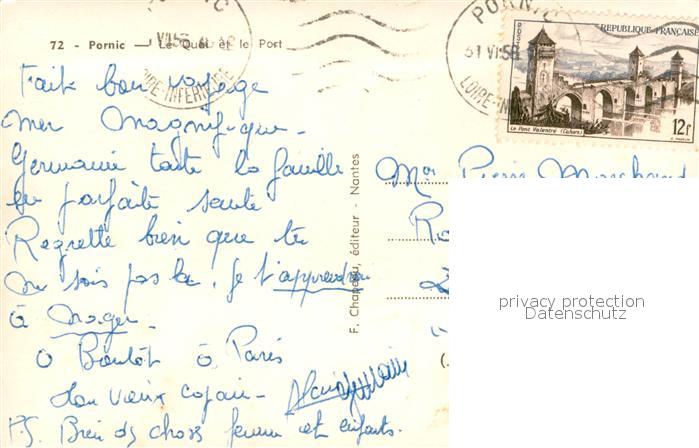 72 - Pornic — Le Quai et le Port
PORNIC
LOIRE-INFERIEURE
PORNIC
31 VII 56
LOIRE-IN
POSTES
REPUBLIQUE FRANÇAISE
Le Pont Valentré (Cahors)
12f
Fait bon voyage
Mer Magnifique -
Germaine toute la famille
en parfaite santé
Regrette bien que tu
ne sois pas là. Je t'apprendrai
à nager.
à Bientôt à Paris
Ton vieux copain -
P.S. Bien des choses femme et enfants.
F. Chapeau, éditeur - Nantes
Mr Pierre Marchand
privacy protection
Datenschutz